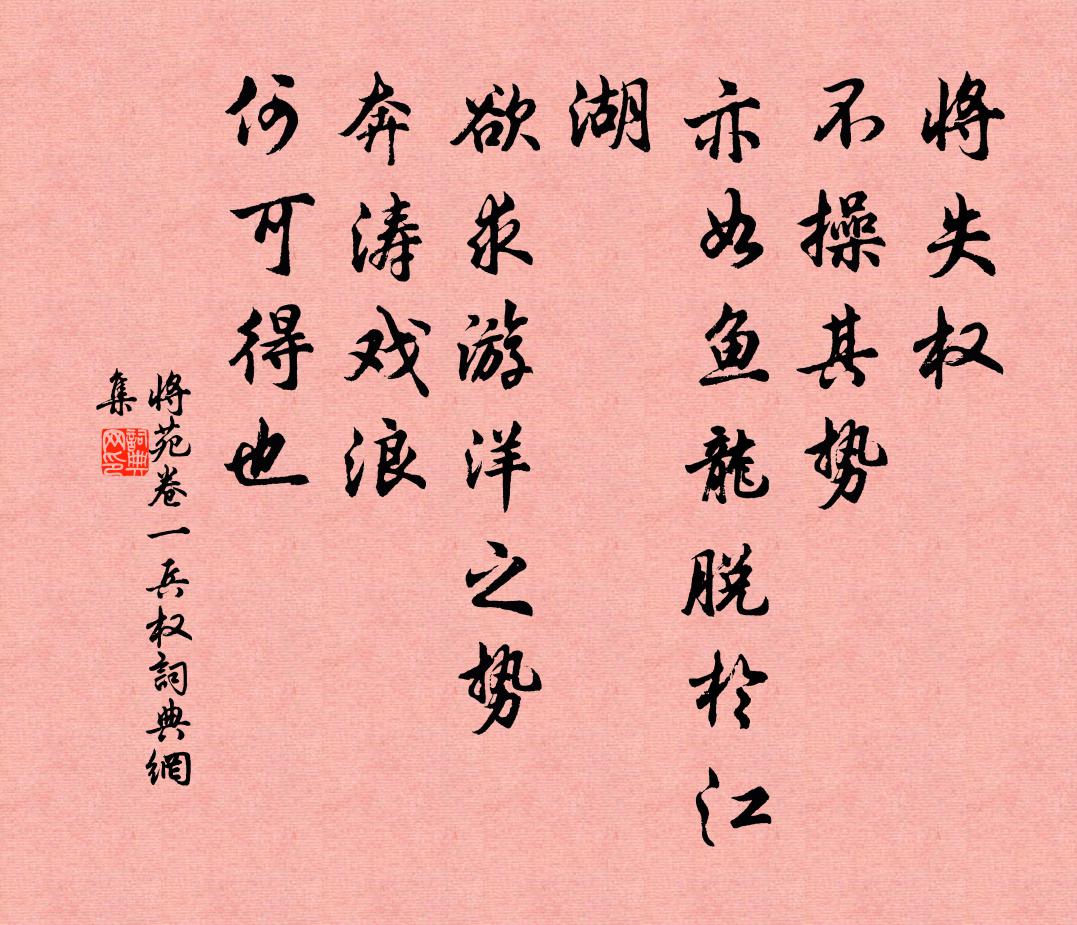 将失权
不操其势
亦如鱼龍脱於江
湖
欲求游洋之势
奔涛戏浪
何可得也
将苑卷一兵权詞典網
集
詞典网印